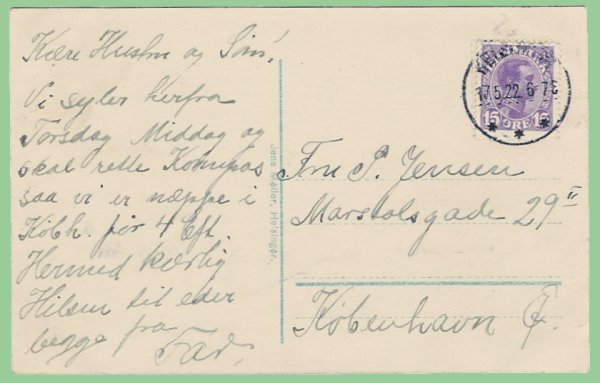 Kære Hustru og Søn!
Vi sejler herfra
Torsdag Middag og
skal rette Kompas
saa vi er næppe i
Kbbh. før 4 Eft.
Hermed kærlig
Hilsen til eder
begge fra
Far.
Jens Møller, Helsingør.
HELSINGØR
17.5.22. 6-7 E
15 ØRE 15
Fru P. Jensen
Marstalsgade 29 II
København Ø.